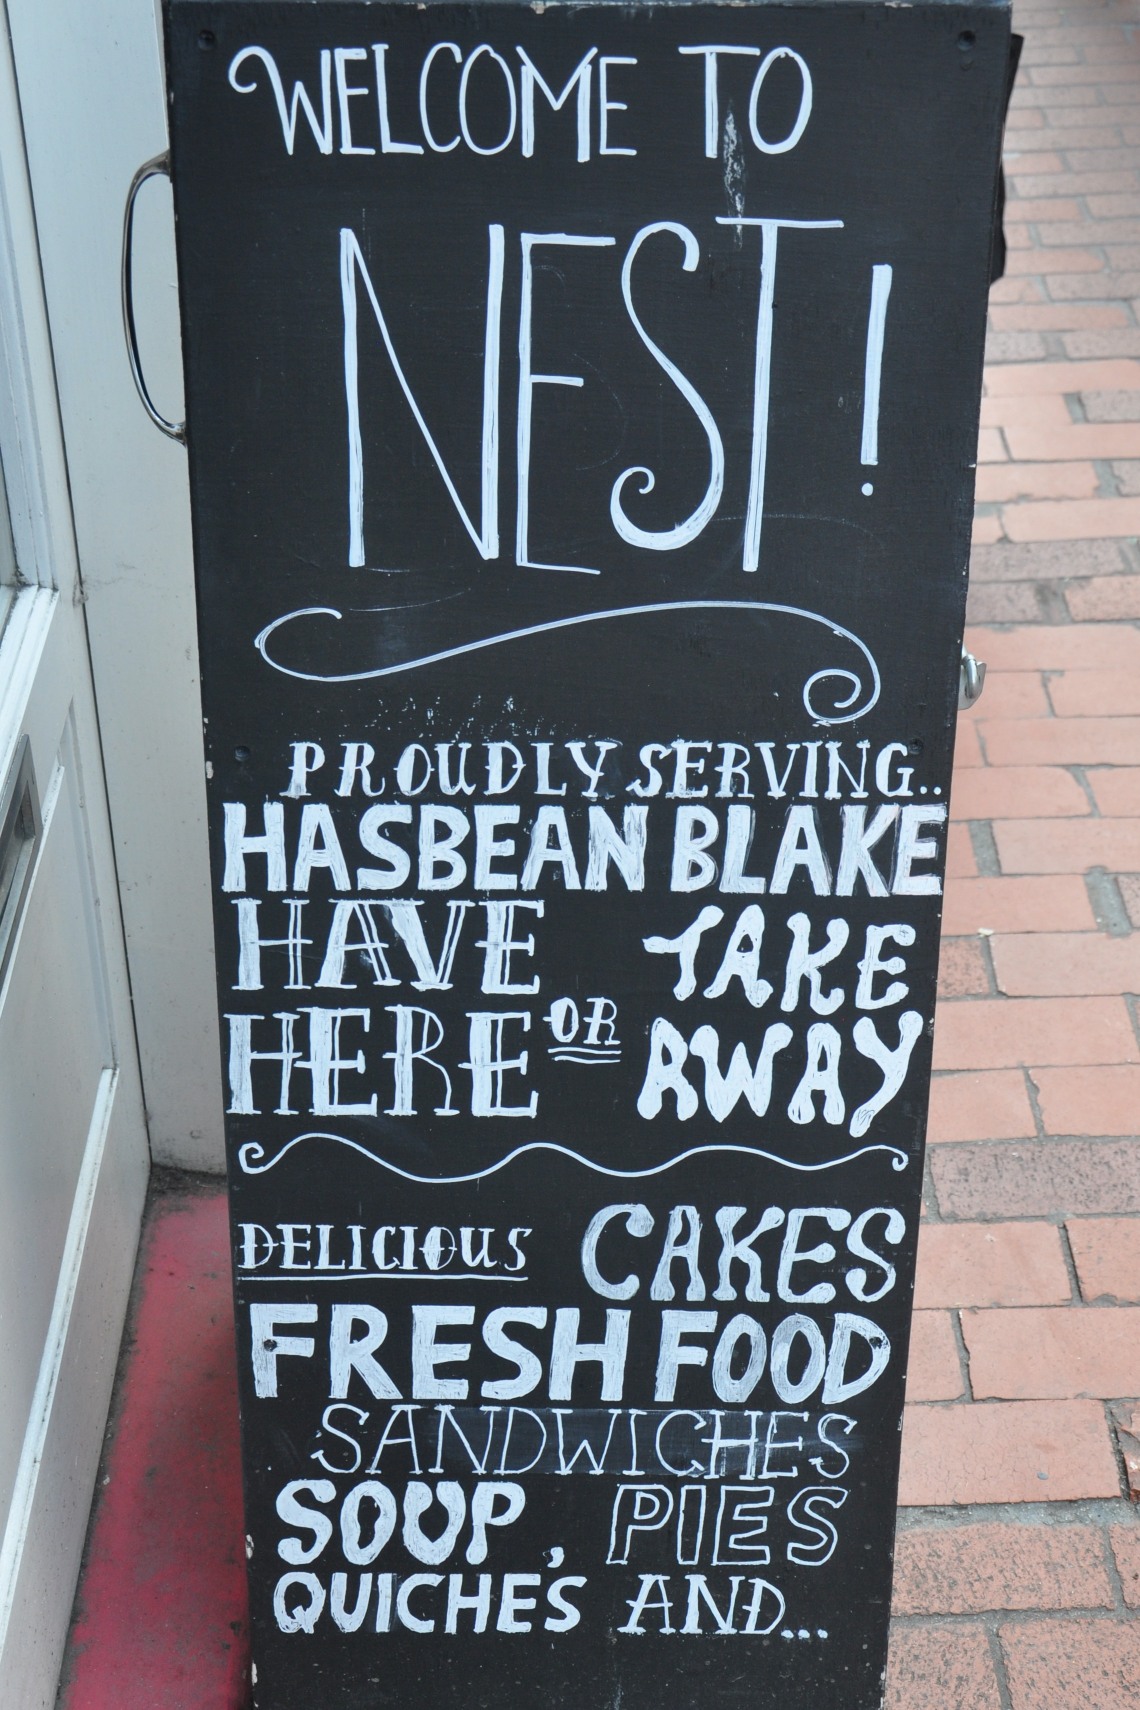 WELCOME TO
NEST!
PROUDLY SERVING..
HASBEAN BLAKE
HAVE TAKE
HERE OR AWAY
DELICIOUS CAKES
FRESH FOOD
SANDWICHES
SOUP, PIES
QUICHE'S AND...